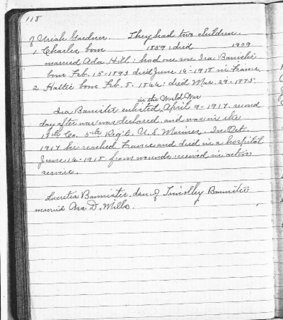 118
of Uriah Gardner. They had two children.
1. Charles born 1859 died 1909
married Ada Hill. had one son Ira Bannister
born Feb. 15-1893 died June 14-1918 in France
2. Hattie born Feb. 8. 1866. died Mar. 29-1875.
in the World War
Ira Bannister enlisted April 9-1917, second
day after war was declared, and was in the
Co. 5th Reg't. U.S. Marines. In Oct.
1917 he reached France and died in a hospital
June 14-1918 from wounds received in active
service.
Lucretia Bannister, dau. of Timothy Bannister
married Asa D. Mills.